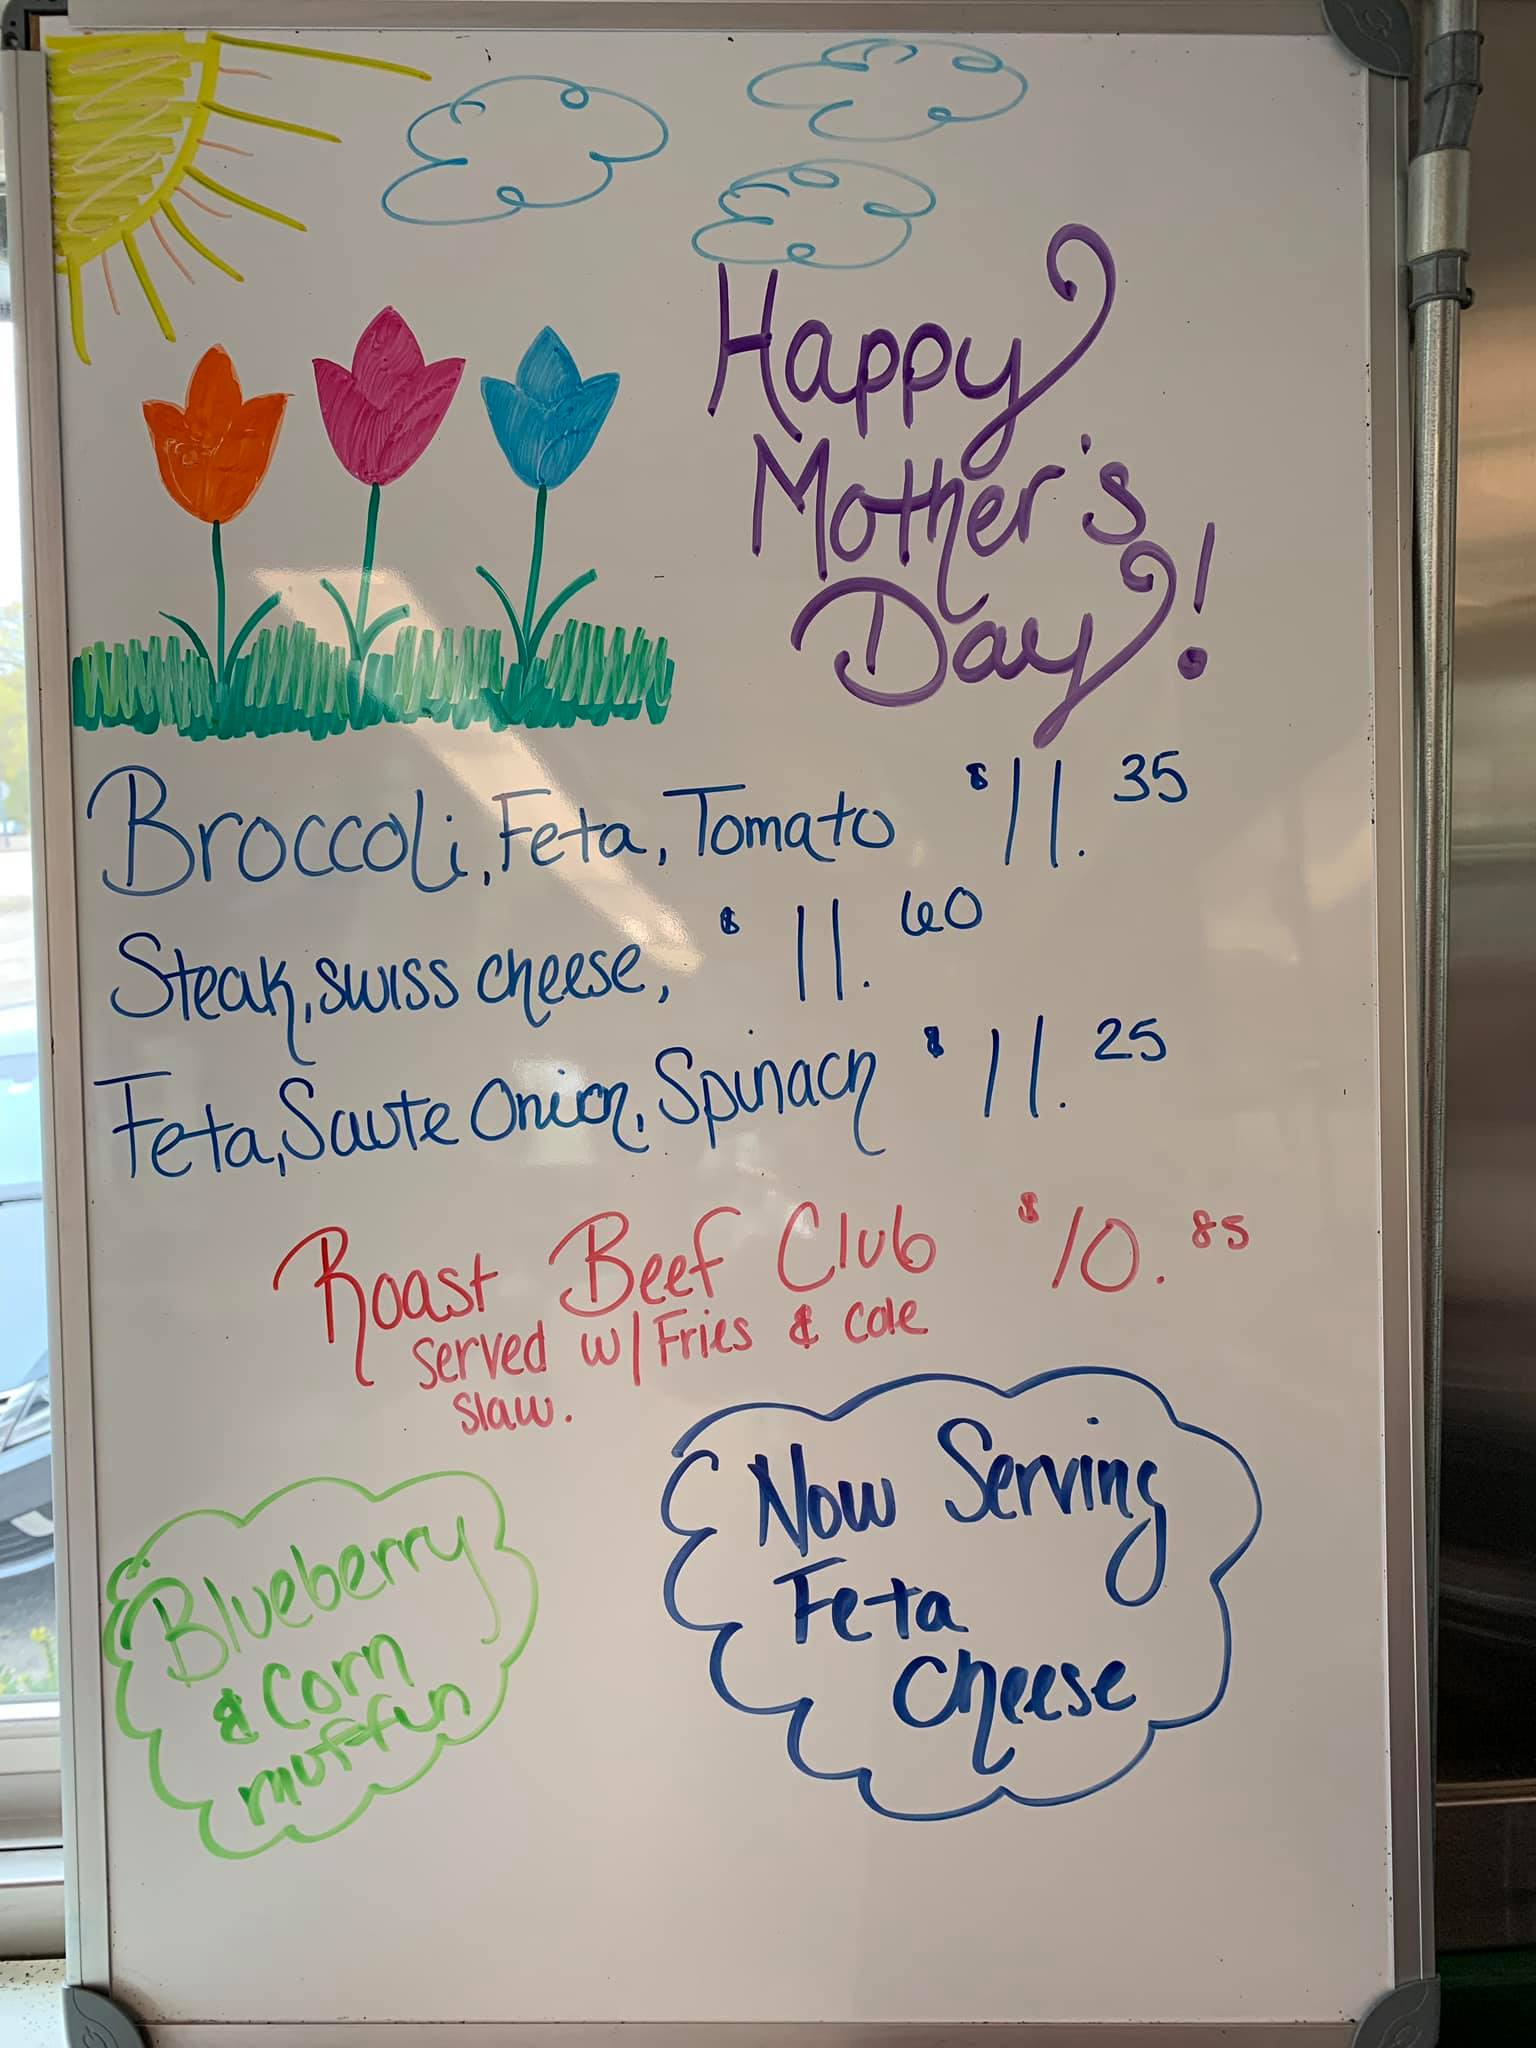 Happy
Mother's
Day!
Broccoli, Feta, Tomato $11.35
Steak, swiss cheese, $11.60
Feta, Saute Onion, Spinach $11.25
Roast Beef Club $10.85
served w/Fries & cole
slaw.
Now Serving
Feta
cheese
Blueberry
& corn
muffin